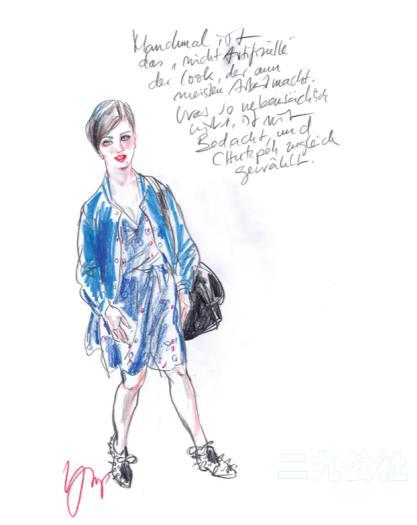 Manchmal ist
das „nicht Artifizielle"
der Look, der am
meisten Arbeit macht.
Was so nebensächlich
wirkt, ist mit
Bedacht und
Chuzpe zugleich
gewählt.
二九公社